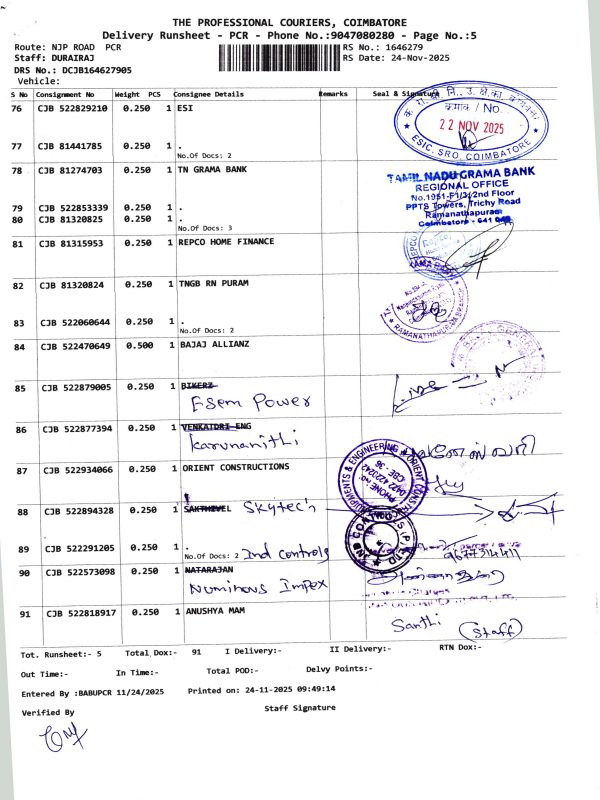 THE PROFESSIONAL COURIERS, COIMBATORE
Delivery Runsheet - PCR - Phone No.:9047080280 - Page No.:5
Route: NJP ROAD PCR RS No.: 1646279
Staff: DURAIRAJ RS Date: 24-Nov-2025
DRS No.: DCJB164627905
Vehicle:
S No Consignment No Weight PCS Consignee Details Remarks Seal & Signature
76 CJB 522829210 0.250 1 ESI
क्रमांक / No.
22 NOV 2025
ESIC, SRO, COIMBATORE
77 CJB 81441785 0.250 1 .
No.Of Docs: 2
78 CJB 81274703 0.250 1 TN GRAMA BANK
TAMIL NADU GRAMA BANK
REGIONAL OFFICE
No.1951-F1/3/2nd Floor
PPTS Towers, Trichy Road
Ramanathapuram
Coimbatore - 641 045
79 CJB 522853339 0.250 1 .
80 CJB 81320825 0.250 1 .
No.Of Docs: 3
81 CJB 81315953 0.250 1 REPCO HOME FINANCE
82 CJB 81320824 0.250 1 TNGB RN PURAM
83 CJB 522060644 0.250 1 .
No.Of Docs: 2
84 CJB 522470649 0.500 1 BAJAJ ALLIANZ
85 CJB 522879005 0.250 1 BIKERZ
Esem Power
86 CJB 522877394 0.250 1 VENKATDRI ENG
Karunanithi
87 CJB 522934066 0.250 1 ORIENT CONSTRUCTIONS
EQUIPMENTS & ENGINEERING ORIENT CONSTRUCTIONS
PHONE NO: 0422 4210242
CBE - 36
88 CJB 522894328 0.250 1 SAKTHIVEL Skytech
89 CJB 522291205 0.250 1 .
No.Of Docs: 2 Ind controls
9677314411
90 CJB 522573098 0.250 1 NATARAJAN
Numinous Impex
91 CJB 522818917 0.250 1 ANUSHYA MAM
Santhi (Staff)
Tot. Runsheet:- 5 Total Dox:- 91 I Delivery:- II Delivery:- RTN Dox:-
Out Time:- In Time:- Total POD:- Delvy Points:-
Entered By :BABUPCR 11/24/2025 Printed on: 24-11-2025 09:49:14
Verified By Staff Signature